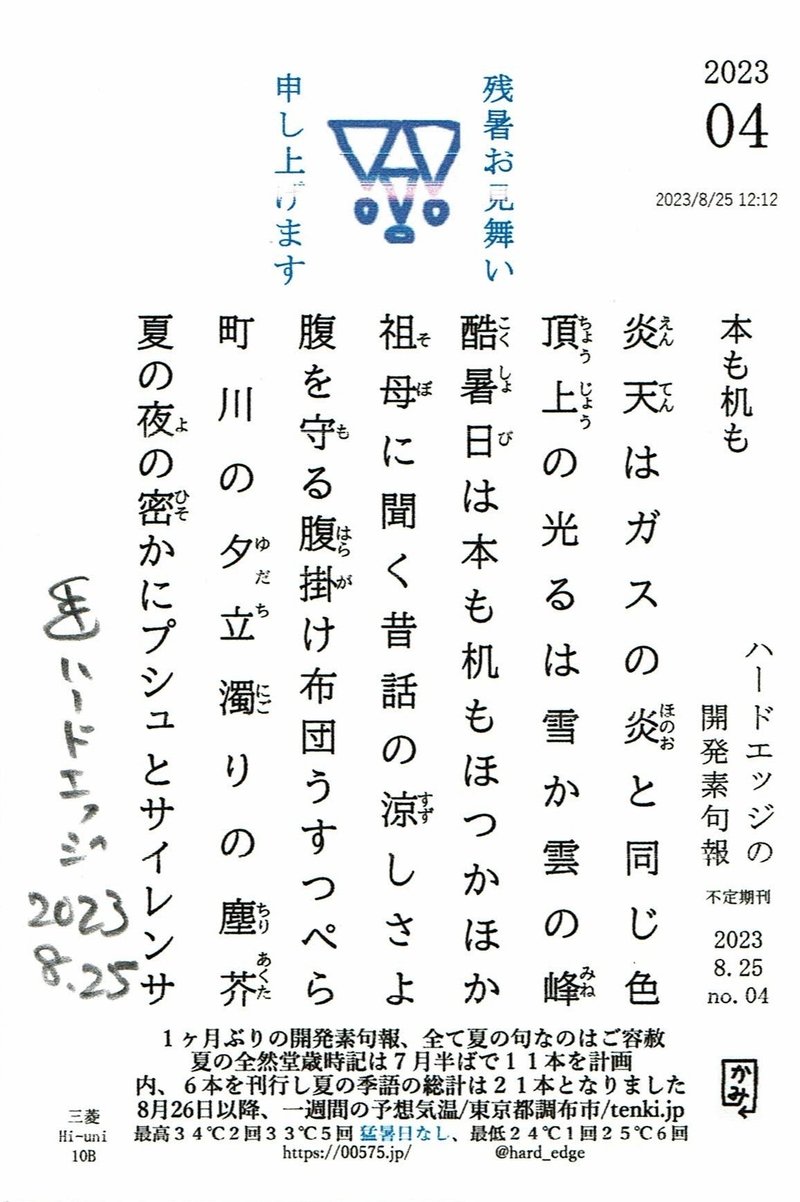 2023
04
2023/8/25 12:12
残暑お見舞い
申し上げます
本も机も
ハードエッジの
開発素句報
不定期刊
2023
8.25
no. 04
炎天はガスの炎と同じ色
えん てん ほのお
頂上の光るは雪か雲の峰
ちょう じょう みね
酷暑日は本も机もほつかほか
こく しょ び
祖母に聞く昔話の涼しさよ
そ ぼ すず
腹を守る腹掛け布団うすつぺら
も はら が
町川の夕立濁りの塵芥
ゆだ ち にご ちり あくた
夏の夜の密かにプシュとサイレンサ
よ ひそ
ハードエッジ
2023
8.25
1ヶ月ぶりの開発素句報、全て夏の句なのはご容赦
夏の全然堂歳時記は7月半ばで11本を計画
内、6本を刊行し夏の季語の総計は21本となりました
8月26日以降、一週間の予想気温/東京都調布市/tenki.jp
最高34℃2回33℃5回 猛暑日なし、最低24℃1回25℃6回
https://00575.jp/ @hard_edge
三菱
Hi-uni
10B
かみ